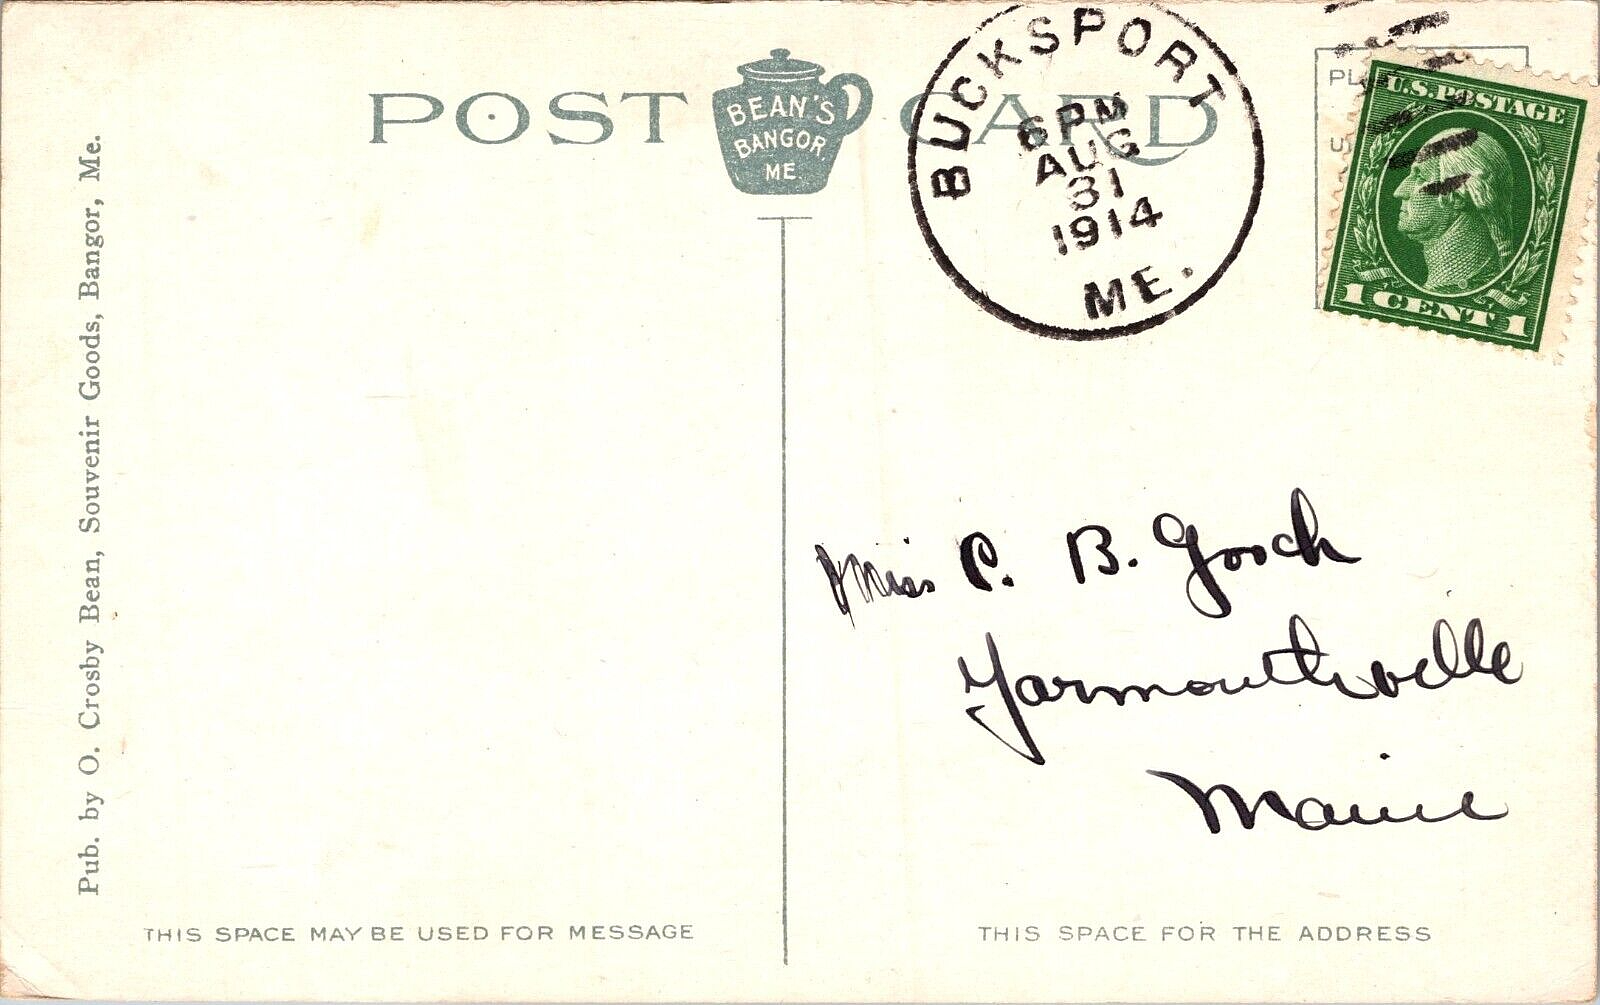 POST CARD
BEAN'S
BANGOR,
ME.
BUCKSPORT
6 PM
AUG
31
1914
ME.
PL
U
U.S. POSTAGE
1 CENT 1
Pub. by O. Crosby Bean, Souvenir Goods, Bangor, Me.
Miss P. B. Gooch
Yarmouthville
Maine
THIS SPACE MAY BE USED FOR MESSAGE
THIS SPACE FOR THE ADDRESS